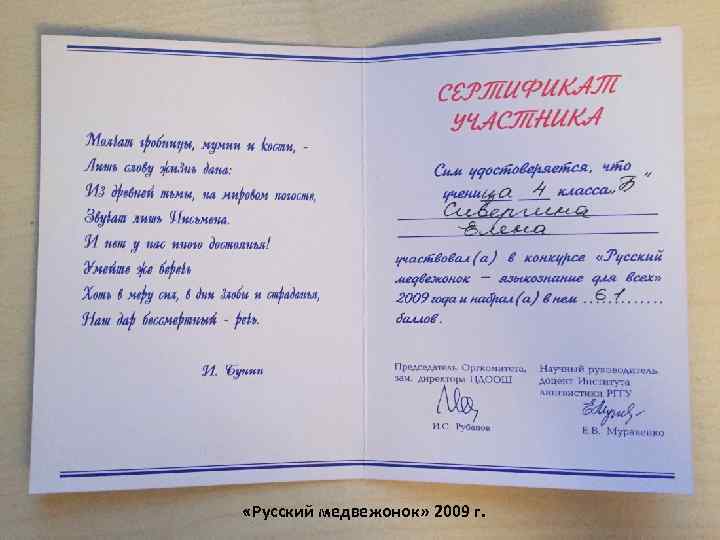 Молчат гробницы, мумии и кости, -
Лишь слову жизнь дана:
Из древней тьмы, на мировом погосте,
Звучат лишь Письмена.
И нет у нас иного достоянья!
Умейте же беречь
Хоть в меру сил, в дни злобы и страданья,
Наш дар бессмертный - речь.
И. Бунин
СЕРТИФИКАТ
УЧАСТНИКА
Сим удостоверяется, что
учени ца 4 класса „Б“
Сивергина
Елена
участвовал(а) в конкурсе «Русский
медвежонок — языкознание для всех»
2009 года и набрал(а) в нем ...61...
баллов.
Председатель Оргкомитета,
зам. директора ЦДООШ
И.С. Рубанов
Научный руководитель,
доцент Института
лингвистики РГГУ
Е.В. Муравенко
«Русский медвежонок» 2009 г.